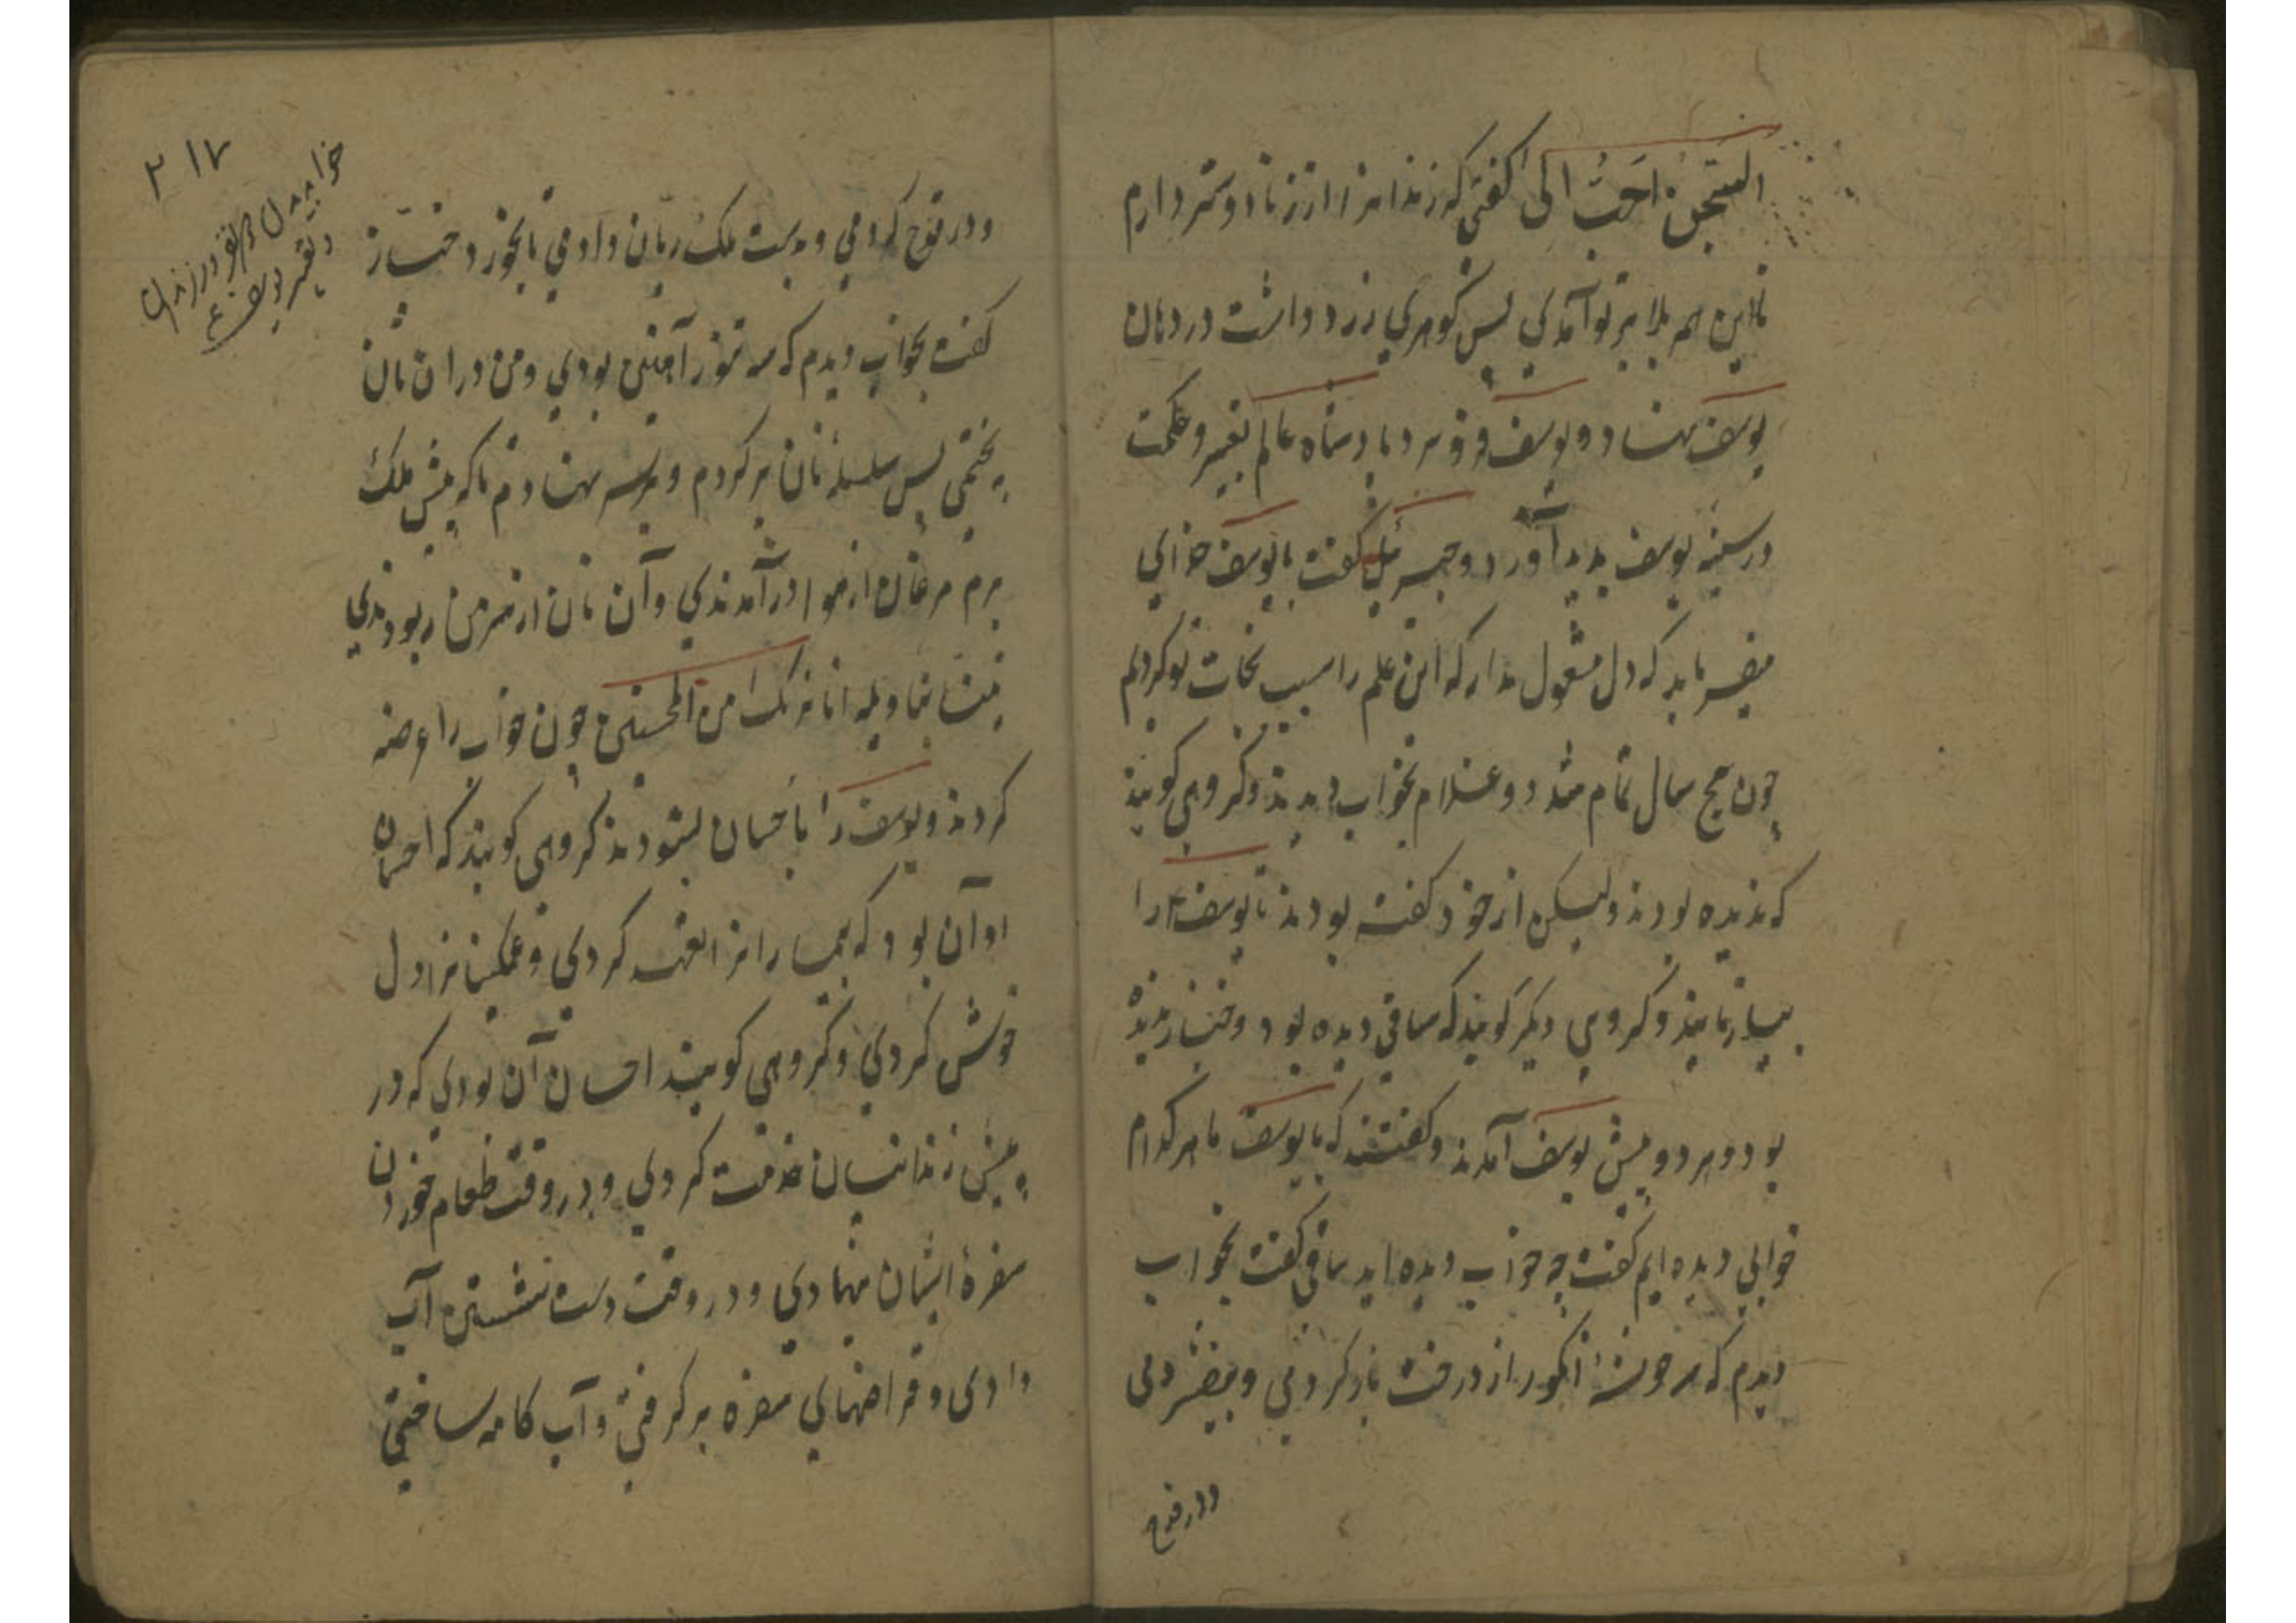 السجن احب الیّ گفتی که زندانرا از زنا دوستر دارم
تا این همه بلا بر تو آمدی پس گوهری زرد داشت در دهان
یوسف نهاد و یوسف فرو برد بادشاه عالم تعبیر و حکمت
در سینه یوسف پدید آورد و جبرئیل گفت یا یوسف خدای
میفرماید که دل مشغول مدار که این علم را سبب نجات تو کردم
چون پنج سال تمام شد دو غلام بخواب دیدند و گروهی گویند
که ندیده بودند ولیکن از خود گفته بودند تا یوسف را
بیازمایند و گروهی دیگر گویند که ساقی دیده بود و خباز ندیده
بود و هر دو پیش یوسف آمدند و گفتند که یا یوسف ما هر کدام
خوابی دیده ایم گفت چه خواب دیده اید ساقی گفت بخواب
دیدم که سه خوشهٔ انگور از درخت باز کردمی و بیفشردمی
و در قدح
۲۱۷
خواب دیدن در زندان
و تعبیر یوسف ع
و در قدح کردمی و بدست ملک ریان دادمی تا بخورد خباز
گفت بخواب دیدم که سه تنور آهنین بودی و من در آن نان
پختمی پس سه سله نان بر کردم و بر سر نهادم تا که پیش ملک
برم مرغان از هوا درآمدندی و آن نان از سر من ربودندی
نبئنا بتاویله انا نریک من المحسنین چون خواب را عرضه
کردند و یوسف را باحسان بستودند گروهی گویند که احسان
او آن بود که بیمارانرا تعهد کردی و غمگینانرا دل
خوش کردی و گروهی گویند احسان آن بودی که در
پیش زندانیان خدمت کردی و در وقت طعام خوردن
سفرهٔ ایشان نهادی و در وقت دست شستن آب
دادی و قراضهای سفره بر گرفتی و آب کامه ساختی